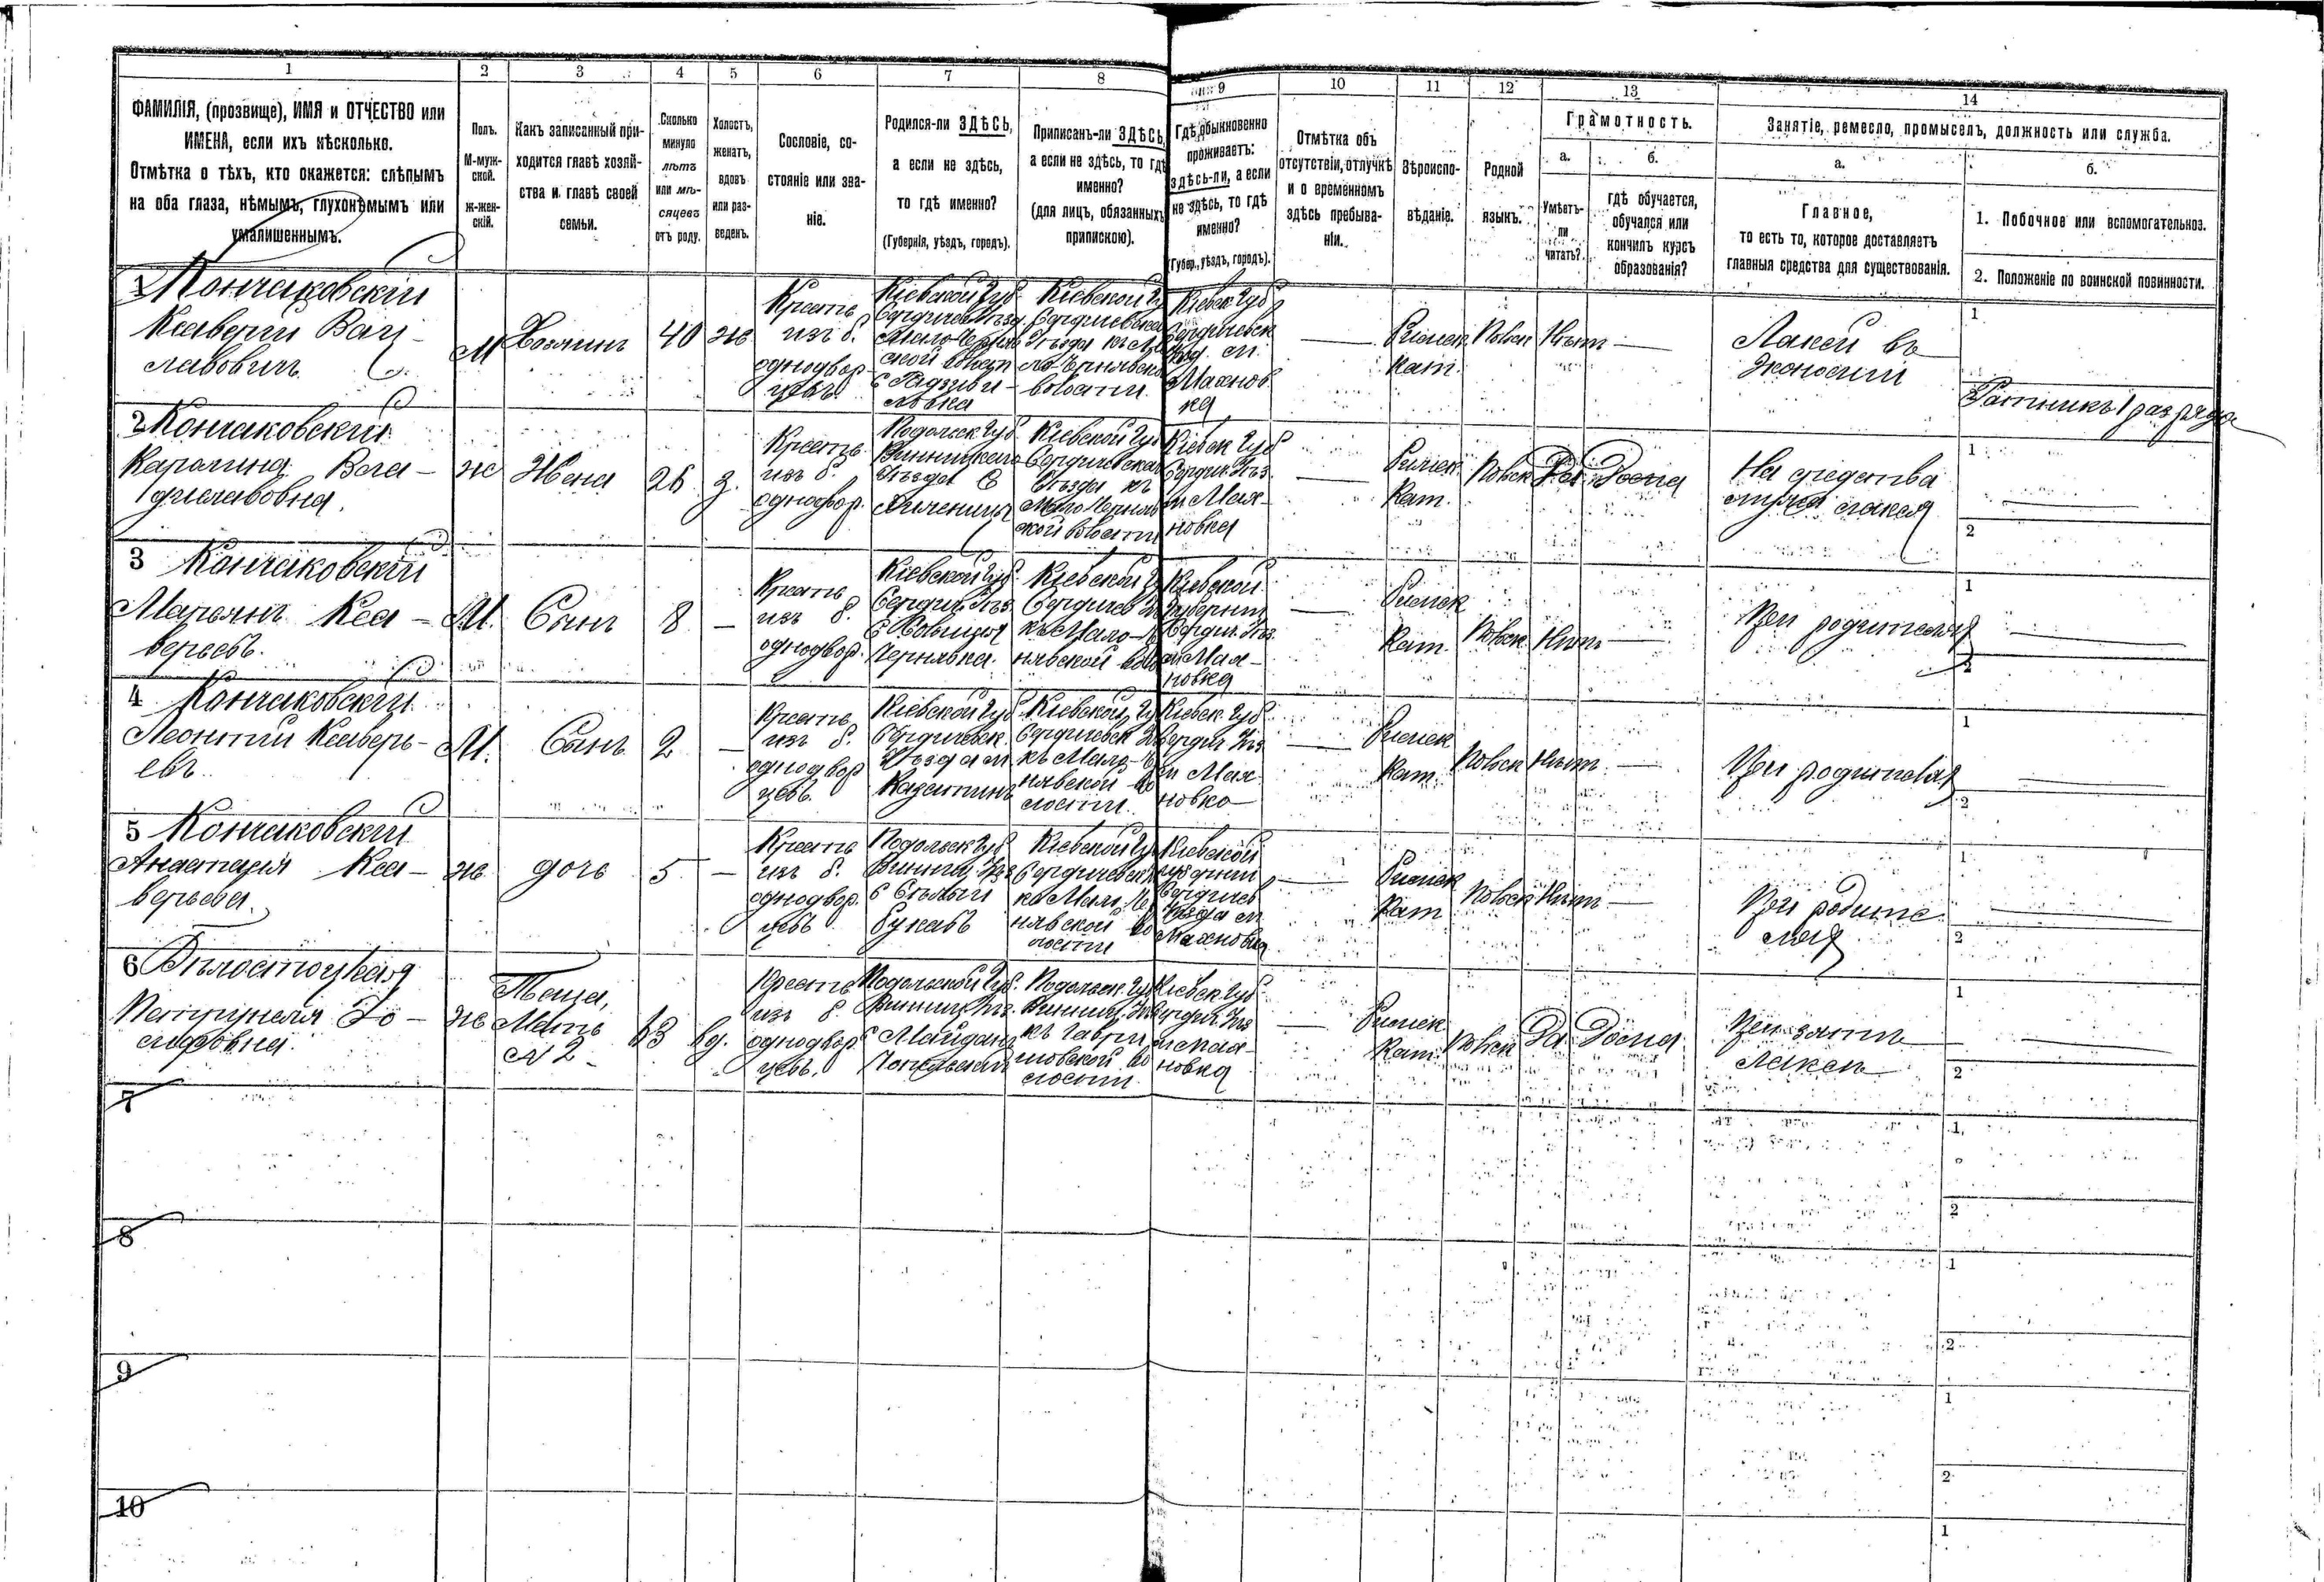 1 2 3 4 5 6 7 8 9 10 11 12 13 14
ФАМИЛІЯ, (прозвище), ИМЯ и ОТЧЕСТВО или
ИМЕНА, если ихъ нѣсколько.
Отмѣтка о тѣхъ, кто окажется: слѣпымъ
на оба глаза, нѣмымъ, глухонѣмымъ или
умалишеннымъ.
Полъ.
М-муж-
ской.
ж-жен-
скій.
Какъ записанный при-
ходится главѣ хозяй-
ства и главѣ своей
семьи.
Сколько
минуло
лѣтъ
или мѣ-
сяцевъ
отъ роду.
Холостъ,
женатъ,
вдовъ
или раз-
веденъ.
Сословіе, со-
стояніе или зва-
ніе.
Родился-ли ЗДѢСЬ,
а если не здѣсь,
то гдѣ именно?
(Губернія, уѣздъ, городъ).
Приписанъ-ли ЗДѢСЬ,
а если не здѣсь, то гдѣ
именно?
(для лицъ, обязанныхъ
припискою).
Гдѣ обыкновенно
проживаетъ:
здѣсь-ли, а если
не здѣсь, то гдѣ
именно?
(Губер., уѣздъ, городъ).
Отмѣтка объ
отсутствіи, отлучкѣ
и о временномъ
здѣсь пребыва-
ніи.
Вѣроиспо-
вѣданіе.
Родной
языкъ.
Грамотность.
а.
Умѣетъ-
ли
читать?
б.
гдѣ обучается,
обучался или
кончилъ курсъ
образованія?
Занятіе, ремесло, промыселъ, должность или служба.
а.
Главное,
то есть то, которое доставляетъ
главныя средства для существованія.
б.
1. Побочное или вспомогательное.
2. Положеніе по воинской повинности.
1 Кончаковскій
Ксаверій Вац-
лавовичъ
М
Хозяинъ
40
ж
Крестъ
изъ б.
однодвор-
цевъ
Кіевской губ
Бердичев уѣзд.
волост
Кіевской г
Бердичевска
уѣзда къ
волости
Кіевск губ
Бердичевск
м.
Махнов
ка
Римск
Кат.
Польск
Нѣтъ
Лакей въ
Экономіи
1
Ратникъ 1 разряда
2 Кончаковскій
Каролина
ж
Жена
26
з.
Крестъ
изъ б.
однодвор.
Подольск губ
Винницкаго
уѣзда с
Кіевской губ
Бердичевска
уѣзда къ
Мало Черняв
ской волости
Кіевск губ
Бердич уѣз
м Мах-
новка
Римск
Кат.
Польск
Да
Дома
На средства
мужа лакея
1
2
3 Кончаковскій
Марьянъ Кса-
верьевъ.
М.
Сынъ
8
Крестъ
изъ б.
однодвор.
Кіевской губ.
Бердич. уѣз
Чернявка.
Кіевской г
Бердичев
къ Мало-
нявской
Кіевской
губерніи
Бердич. уѣз
м Мах-
новка
Римск
Кат.
Польск
Нѣтъ
При родителяхъ
1
2
4 Кончаковскій
Леонтій Ксаверь-
евъ.
М.
Сынъ
2
Крестъ
изъ б.
однодвор
цевъ.
Кіевской губ
Бердичевск.
уѣзда м
Казатинъ
Кіевской г
Бердичевск
къ Мало
нявской во
лости.
Кіевск губ
Бердич уѣз
м Мах
новка
Римск
Кат.
Польск
Нѣтъ
При родителяхъ
1
2
5 Кончаковскій
Анастасія Кса-
верьева.
ж
дочь
5
Крестъ
изъ б.
однодвор.
цевъ
Подольск губ
Винниц. уѣз
с
Кіевской г
Бердичевск
къ Мало Че
нявской во
лости
Кіевской
губерніи
Бердичев
уѣзда м
Махновка
Римск
Кат
Польск
Нѣтъ
При родите
ляхъ
1
2
6
ж
Теща,
Мать
№ 2
63
вд.
Крестъ
изъ б
однодвор
цевъ.
Подольской губ.
Винниц. уѣз.
с Майданъ
Подольск. губ
Винниц. уѣз
къ Гаври
шовской во
лости.
Кіевск губ
Бердич уѣз
м Мах-
новка
Римск
Кат.
Польск
Да
Дома
При зятѣ
лакеѣ
1
2
7
1
2
8
1
2
9
1
2
10
1